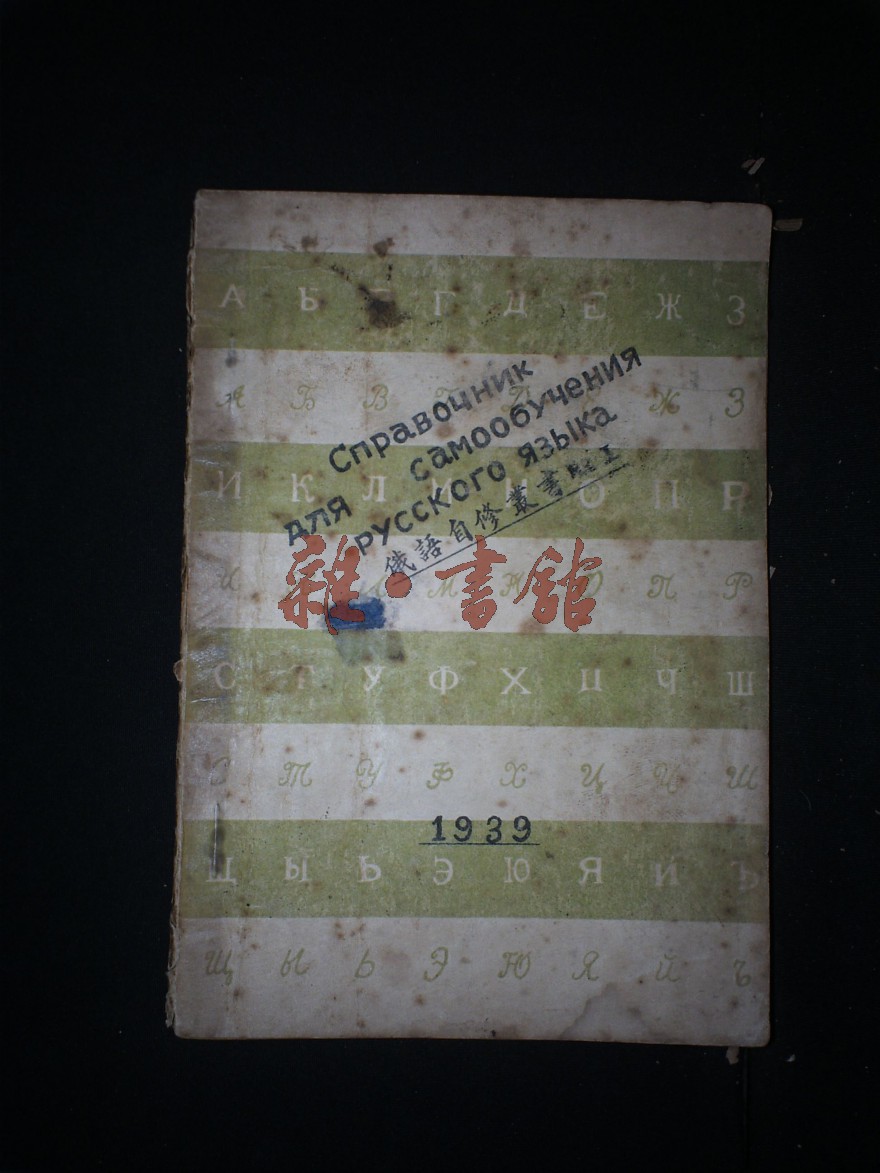 А Б Г Д Е Ж З
А Б В Г Д Ж З
Справочник
для самообучения
русского языка
俄語自修叢書
И К Л М Н О П Р
И Л М Н О П Р
雜·書館
С Т У Ф Х Ц Ч Ш
С Т У Ф Х Ц Ч Ш
1939
Щ Ы Ь Э Ю Я Й Ъ
Щ Ы Ь Э Ю Я Й Ъ